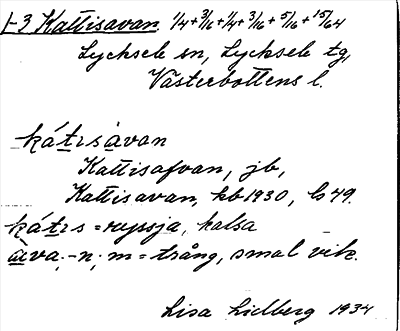 1-3 Kattisavan 1/4+3/16+1/4+3/16+5/16+15/64
Lycksele sn, Lycksele tg,
Västerbottens l.
kátısàvan
Kattisafvan, jb,
Kattisavan, kb 1930, ls 49.
kátıs = ryssja, kalsa
àva, -n, m = trång, smal vik.
Lisa Lidberg 1934